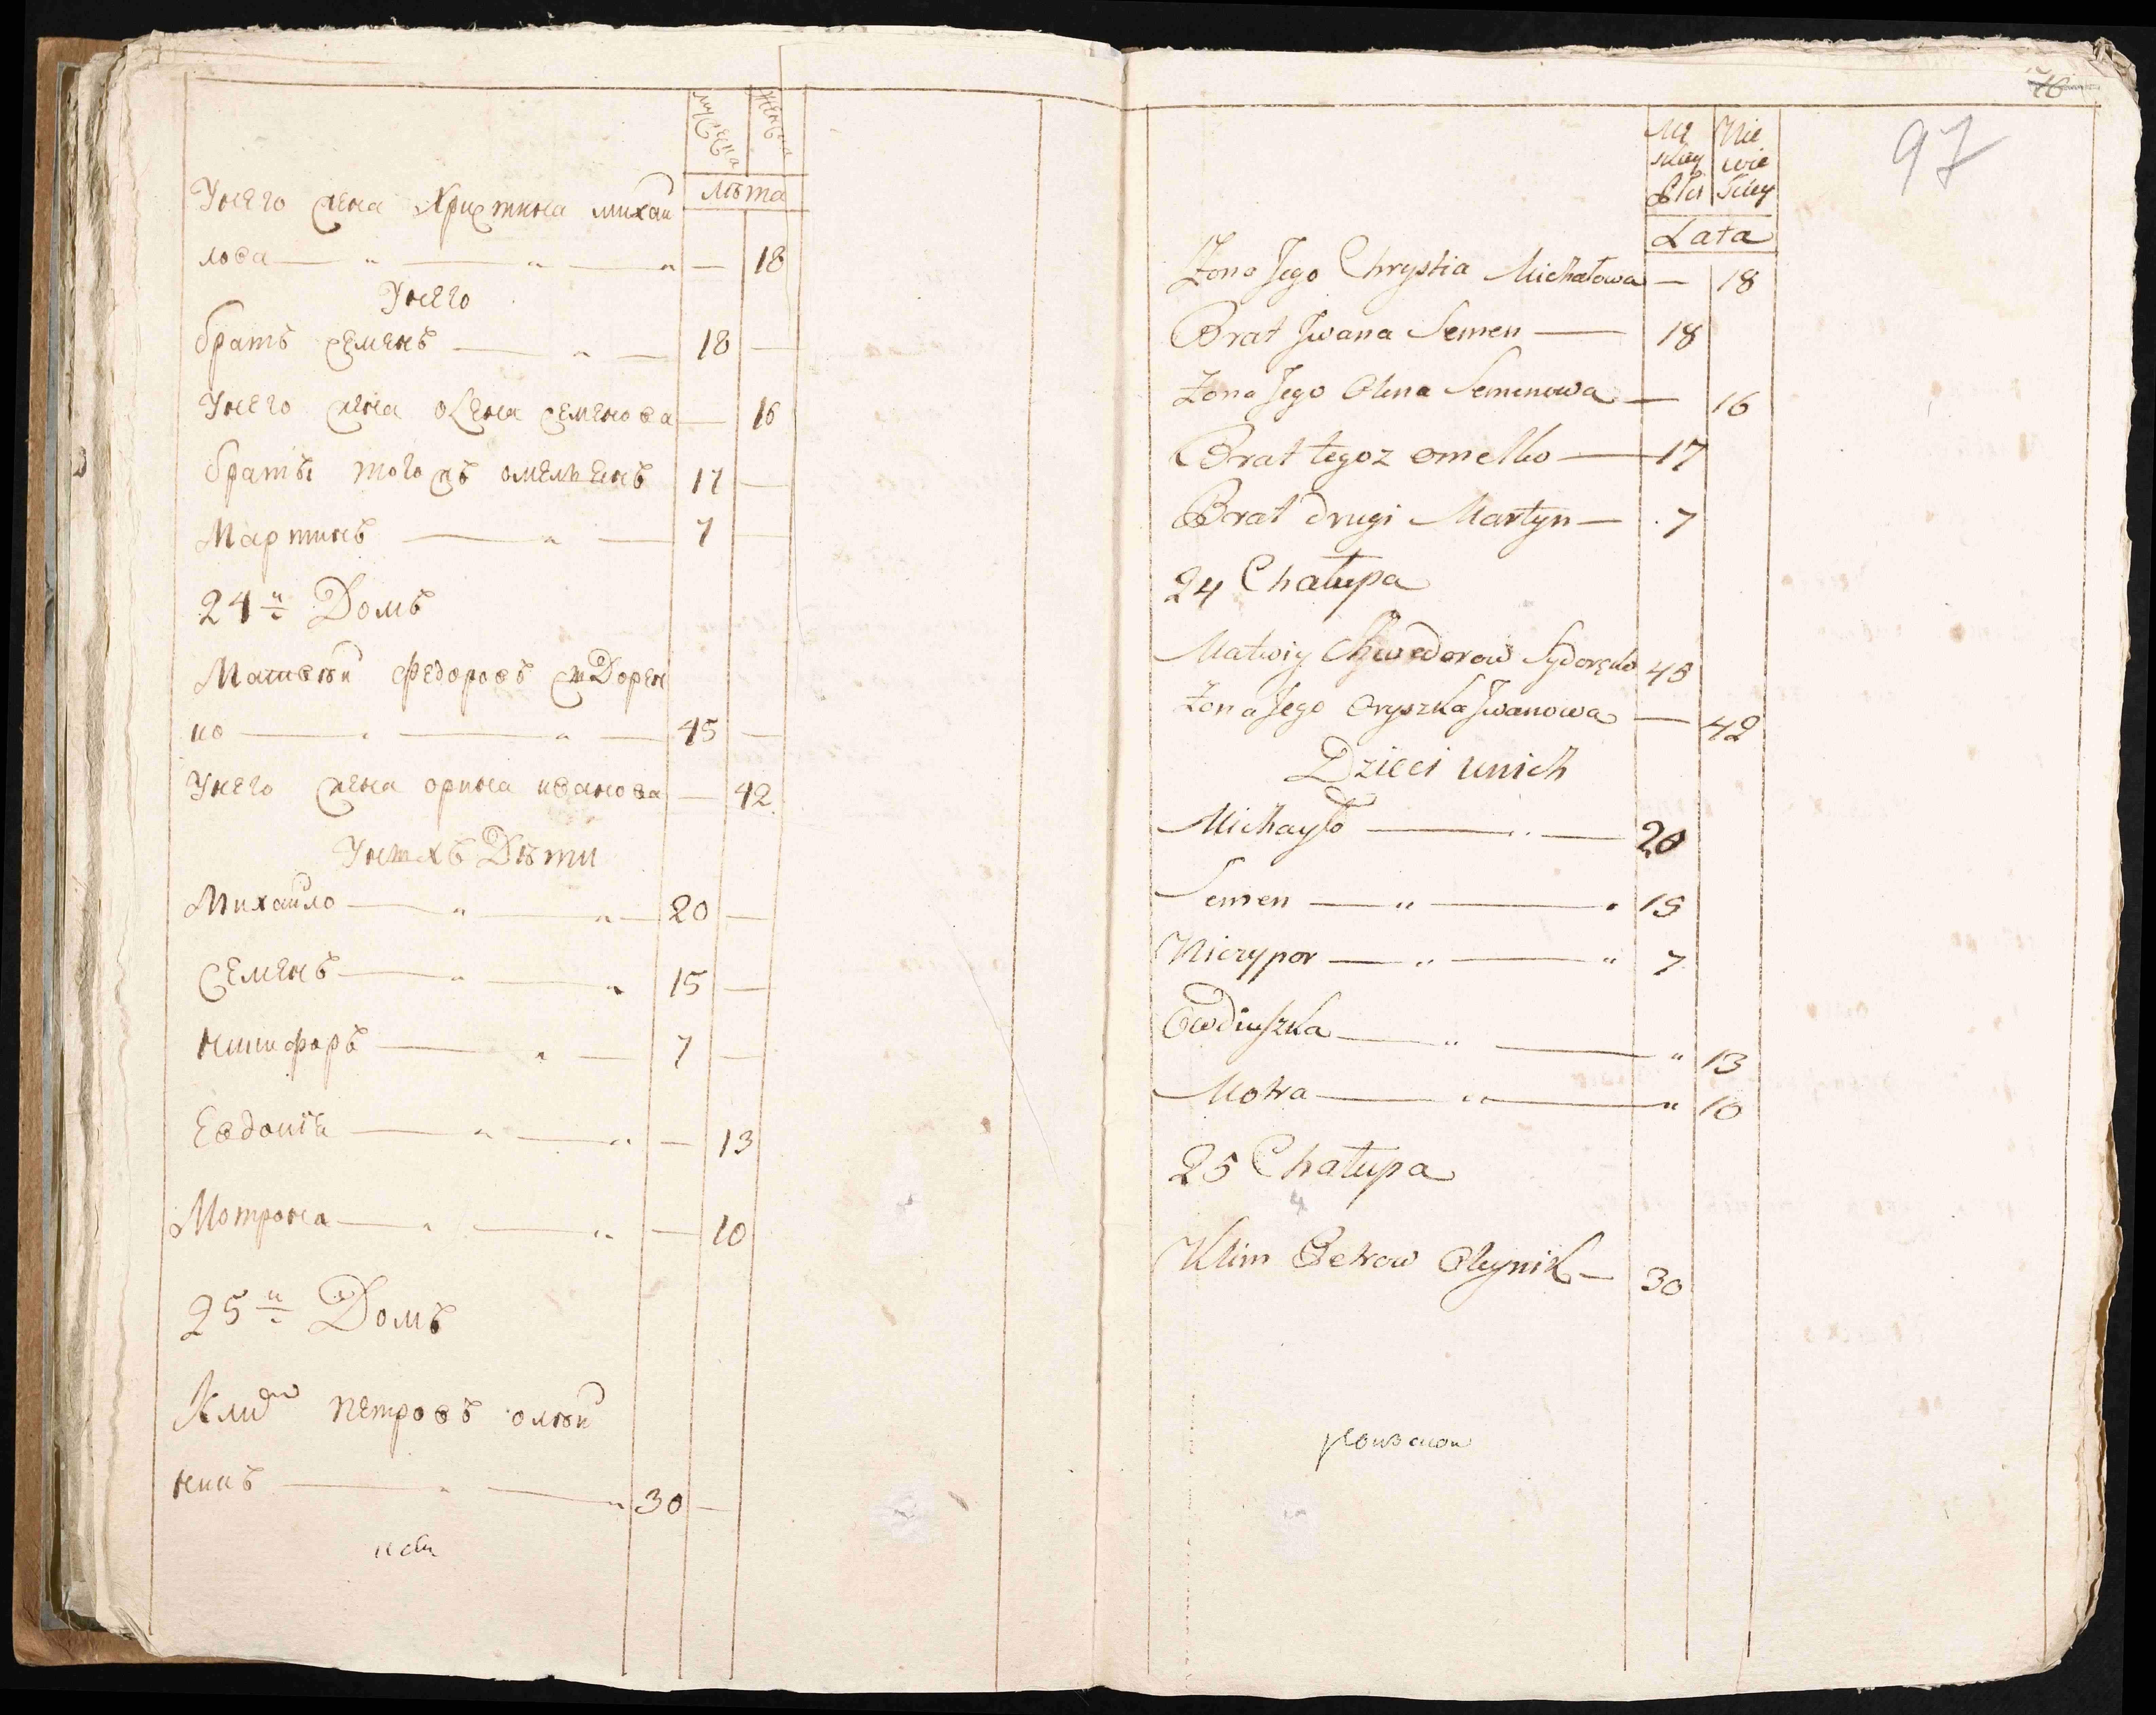 мужеска женска
лѣта
Унего жена Христина михаи
лова — — — 18
Унего
братъ семенъ — — 18 —
Унего жена оLена семенова — 16
браты тогожъ омельенъ 17 —
Мартинъ — — 7 —
24й Домъ
Матвѣй Федоровъ сидорен
ко — — — 45 —
Унего жена орина иванова — 42
Унихъ Дѣти
Михайло — — 20 —
Семенъ — — 15 —
никифоръ — — 7 —
Евдокія — — — 13
Мотрона — — — 10
25й Домъ
Климъ петровъ олѣй
никъ — — 30 —
76
97
Mę skiey płci Nie wie sciey
Lata
Zona Jego Chrystia Michałowa — 18
Brat Jwana Semen — 18
Zona Jego Olena Semenowa — 16
Brat tegoz omelko — 17
Brat drugi Martyn — 7
24 Chałupa
Matwiy Chwedorow Sydoręko 45
Zona Jego Oryszka Jwanowa — 42
Dzieci unich
Michayło — — 20
Semen — — 15
Niczypor — — 7
Ewdiuszka — — 13
Motra — — 10
25 Chałupa
4
Klim Petrow Oleynik — 30